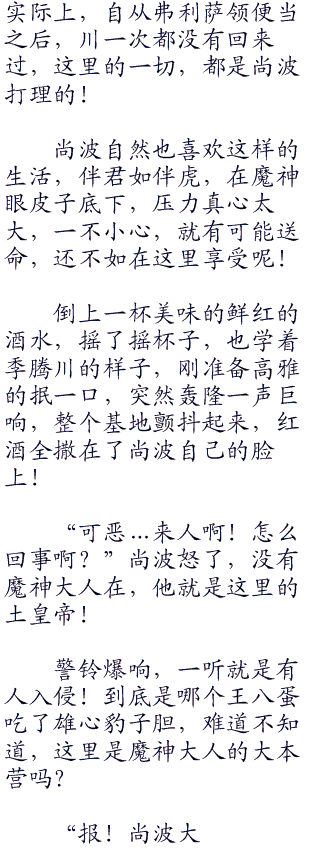 实际上，自从弗利萨领便当
之后，川一次都没有回来
过，这里的一切，都是尚波
打理的！
尚波自然也喜欢这样的
生活，伴君如伴虎，在魔神
眼皮子底下，压力真心太
大，一不小心，就有可能送
命，还不如在这里享受呢！
倒上一杯美味的鲜红的
酒水，摇了摇杯子，也学着
季腾川的样子，刚准备高雅
的抿一口，突然轰隆一声巨
响，整个基地颤抖起来，红
酒全撒在了尚波自己的脸
上！
“可恶…来人啊！怎么
回事啊？”尚波怒了，没有
魔神大人在，他就是这里的
土皇帝！
警铃爆响，一听就是有
人入侵！到底是哪个王八蛋
吃了雄心豹子胆，难道不知
道，这里是魔神大人的大本
营吗？
“报！尚波大